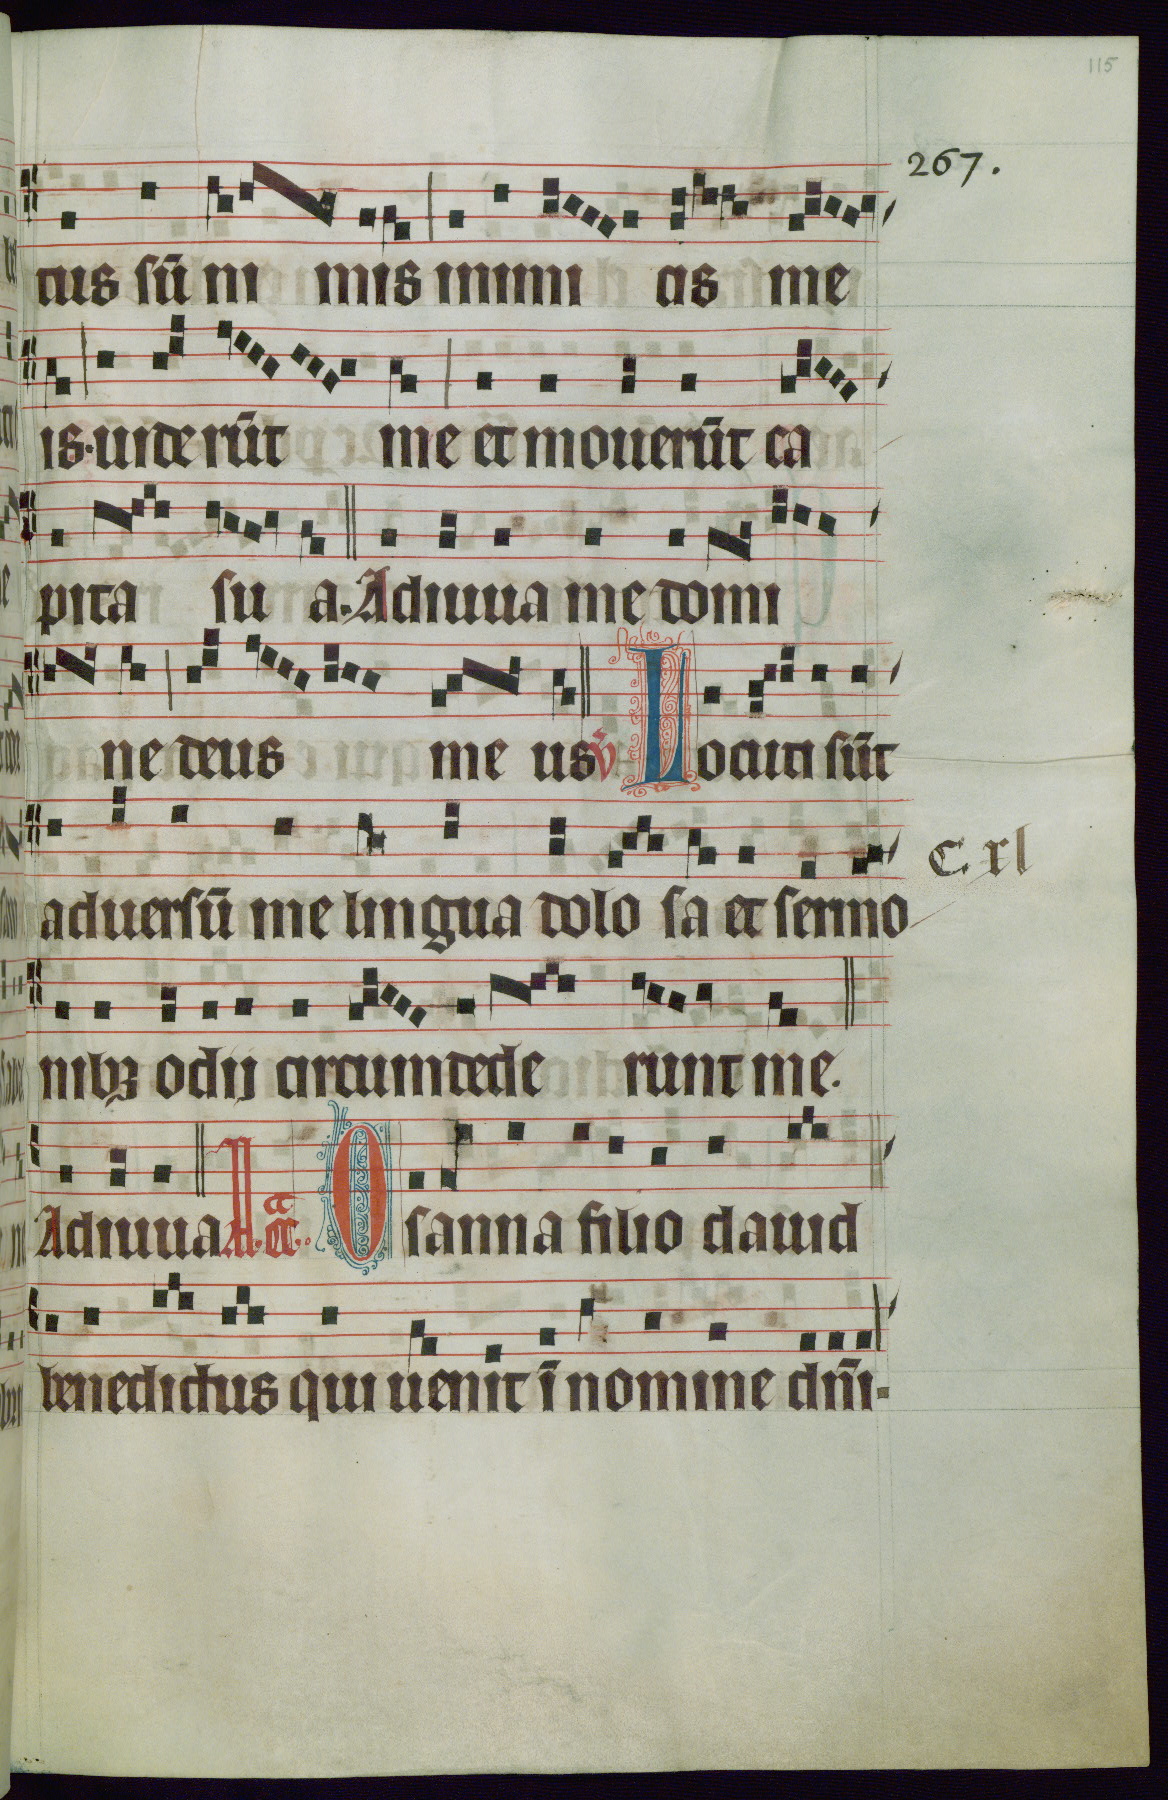 115
267.
tus sū ni mis inimi cis me
is·uiderūt me et mouerūt ca
pita su a·Adiuua me domi
ne deus me us ℣ Locuti sūt
aduersū me lingua dolo sa et sermo
C. xl
nibꝫ odij circumdede runt me.
Adiuua Osanna filio dauid
benedictus qui uenit ī nomine dn̄i